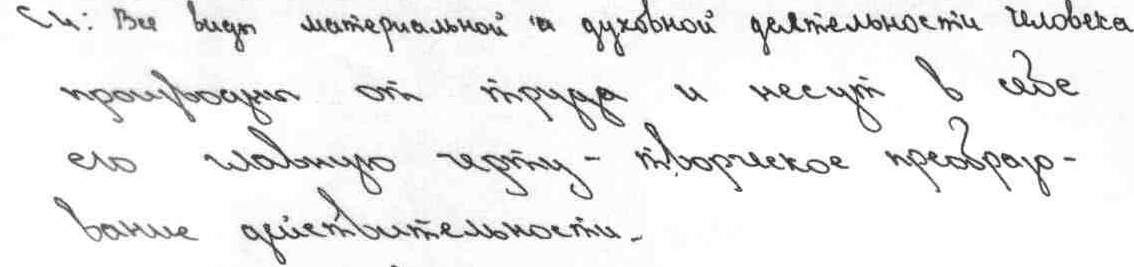 СИ: Все виды материальной и духовной деятельности человека
производны от труда и несут в себе
его главную черту - творческое преобразо-
вание действительности.